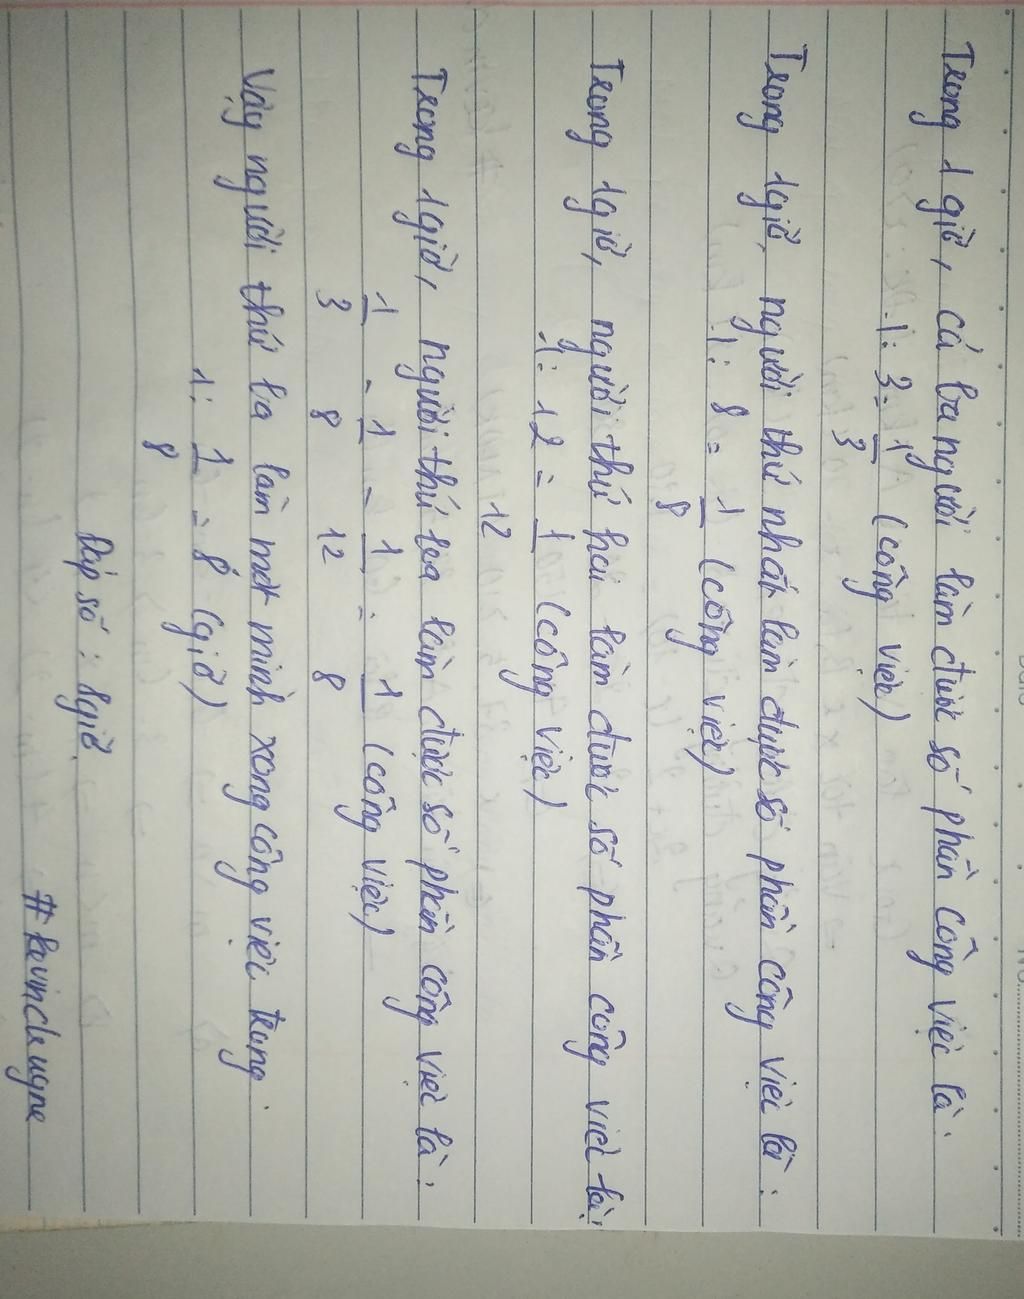 Trong 1 giờ, cả ba người làm được số phần công việc là:
1 : 3 = 1/3 (công việc)
Trong 1 giờ, người thứ nhất làm được số phần công việc là:
1 : 8 = 1/8 (công việc)
Trong 1 giờ, người thứ hai làm được số phần công việc là:
1 : 12 = 1/12 (công việc)
Trong 1 giờ, người thứ ba làm được số phần công việc là:
1/3 - 1/8 - 1/12 = 1/8 (công việc)
Vậy người thứ ba làm một mình xong công việc trong:
1 : 1/8 = 8 (giờ)
Đáp số : 8 giờ